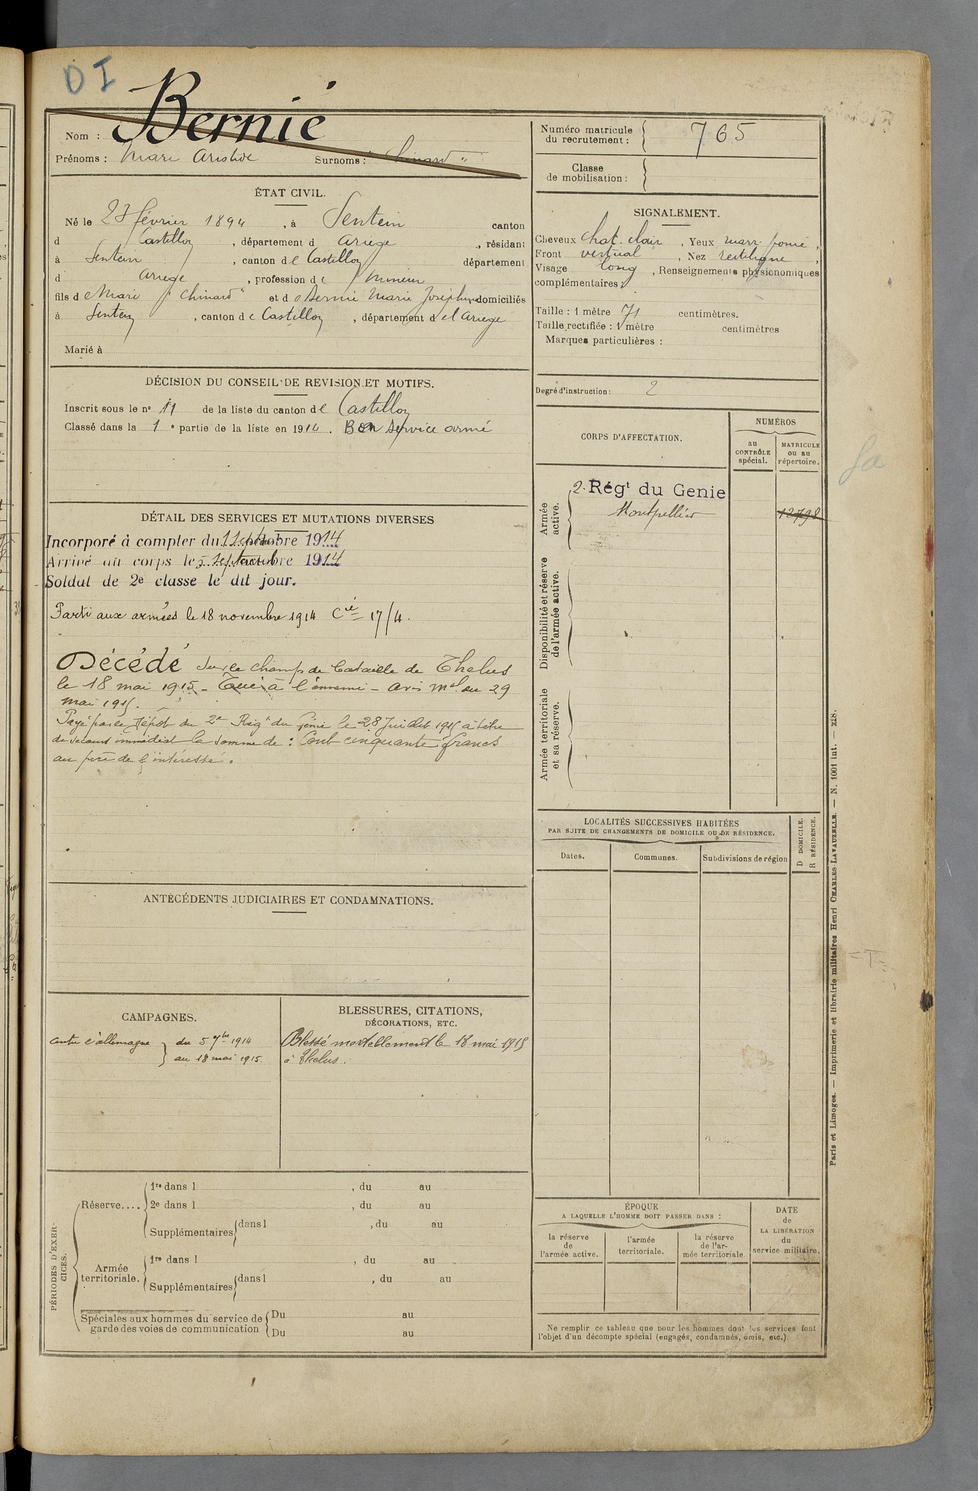 DI
Bernié
Nom :
Prénoms : Marie Aristide Surnoms : "Chinard"
ÉTAT CIVIL.
Né le 23 février 1894, à Sentein canton
d Castillon, département d Ariège, résidant
à Sentein, canton de Castillon département
d Ariège, profession de Mineur
fils de Marie "Chinard" et de Bernié Marie Joséphine domiciliés
à Sentein, canton de Castillon, département de l'Ariège
Marié à
DÉCISION DU CONSEIL DE REVISION ET MOTIFS.
Inscrit sous le n° 11 de la liste du canton de Castillon
Classé dans la 1e partie de la liste en 1914. Bon service armé
DÉTAIL DES SERVICES ET MUTATIONS DIVERSES
Incorporé à compter du 1 septembre 1914
Arrivé au corps le 5 septembre 1914
Soldat de 2e classe le dit jour.
Parti aux armées le 18 novembre 1914 Cie 17/4.
Décédé sur le champ de bataille de Thelus
le 18 mai 1915 - Tué à l'ennemi - avis mel du 29
mai 1915.
Payé par le Dépôt du 2e Régt du Génie le 28 Juillet 1915 à titre
de secours immédiat la somme de : Cent cinquante francs
au père de l'intéressé.
ANTÉCÉDENTS JUDICIAIRES ET CONDAMNATIONS.
CAMPAGNES.
contre l'allemagne } du 5 7bre 1914
au 18 mai 1915.
BLESSURES, CITATIONS,
DÉCORATIONS, ETC.
Blessé mortellement le 18 mai 1915
à Thelus.
PÉRIODES D'EXERCICES.
Réserve.... 1re dans l , du au
2e dans l , du au
Supplémentaires dans l , du au
Armée territoriale. 1re dans l , du au
Supplémentaires dans l , du au
Spéciales aux hommes du service de Du au
garde des voies de communication Du au
Numéro matricule
du recrutement : 765
Classe
de mobilisation :
SIGNALEMENT.
Cheveux chat. clair, Yeux marr foncé,
Front vertical, Nez rectiligne,
Visage long, Renseignements physionomiques
complémentaires :
Taille : 1 mètre 71 centimètres.
Taille rectifiée : 1 mètre centimètres
Marques particulières :
Degré d'instruction : 2
CORPS D'AFFECTATION.
NUMÉROS
AU CONTRÔLE spécial.
MATRICULE OU AU répertoire.
Armée active.
2e Régt du Genie
Montpellier
12798
Disponibilité et réserve de l'armée active.
Armée territoriale et sa réserve.
LOCALITÉS SUCCESSIVES HABITÉES
PAR SUITE DE CHANGEMENTS DE DOMICILE OU DE RÉSIDENCE.
Dates. Communes. Subdivisions de région
D DOMICILE.
R RÉSIDENCE.
ÉPOQUE
A LAQUELLE L'HOMME DOIT PASSER DANS :
la réserve de l'armée active.
l'armée territoriale.
la réserve de l'armée territoriale
DATE de LA LIBÉRATION du service militaire.
Ne remplir ce tableau que pour les hommes dont les services font
l'objet d'un décompte spécial (engagés, condamnés, omis, etc.)
Paris et Limoges. — Imprimerie et librairie militaires Henri CHARLES-LAVAUZELLE. — N. 1001 int. — XIS.